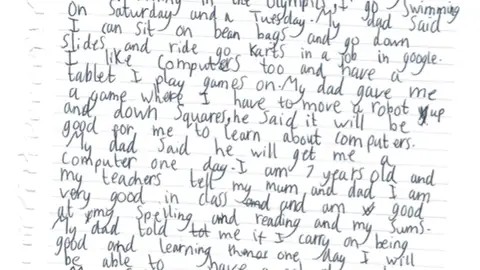 in the Olympics, I go Swimming
On Saturday and a Tuesday. My dad said
I can sit on bean bags and go down
slides and ride go karts in a job in google.
I like computers too and have a
tablet I play games on. My dad gave me
a game where I have to move a robot up
and down squares, he said it will be
good for me to learn about computers.
My dad said he will get me a
computer one day. I am 7 years old and
my teachers tell my mum and dad I am
very good in class and am good
at my spelling and reading and my sums.
My dad told me if I carry on being
good and learning one day I will
be able to have a